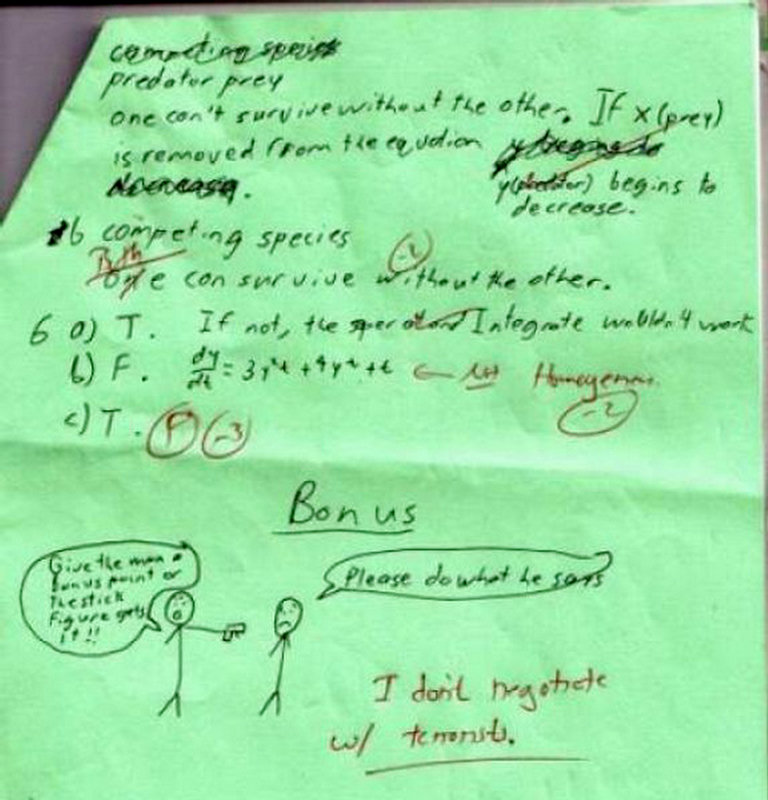 competing species
predator prey
one can't survive without the other. If x (prey)
is removed from the equation
decrease.
y(predator) begins to
decrease.
b competing species
Both
One can survive without the other.
6 a) T. If not, the Integrate wouldn't work
b) F. dy/dt = 3y²t + 4y² + t ← not Homogenous.
-2
c) T. F -3
Bonus
Give the man a
bonus point or
the stick
figure gets
it!!
Please do what he says
I don't negotiate
w/ terrorists.